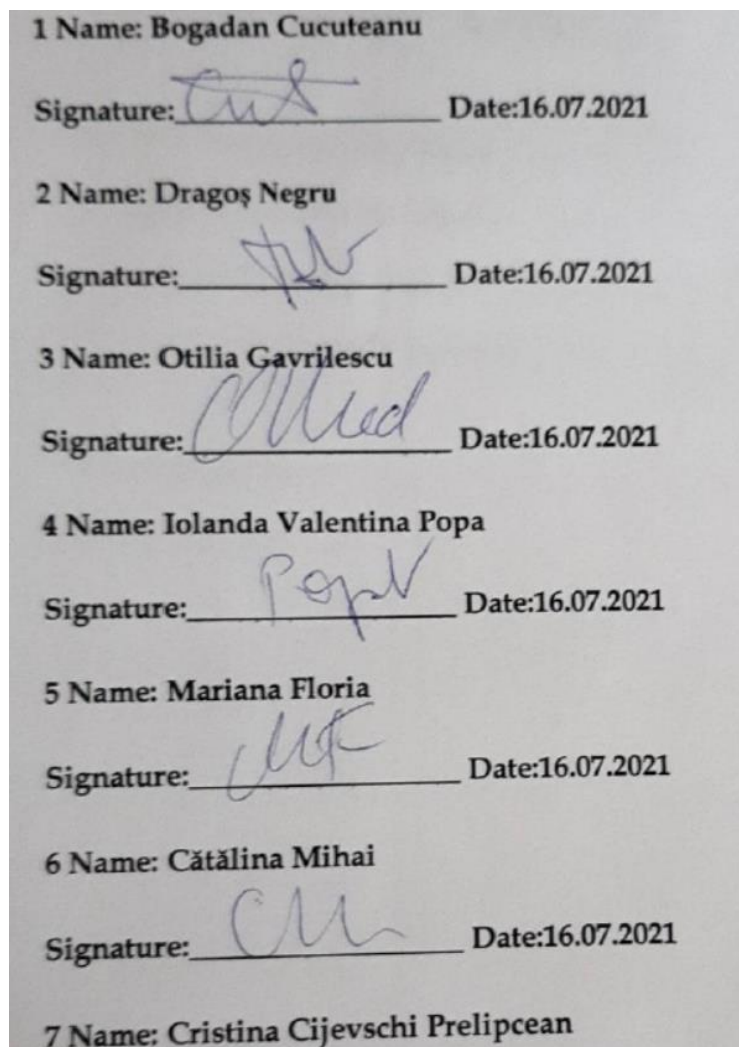 1 Name: Bogadan Cucuteanu
Signature:____________________ Date:16.07.2021
2 Name: Dragoş Negru
Signature:____________________ Date:16.07.2021
3 Name: Otilia Gavrilescu
Signature:____________________ Date:16.07.2021
4 Name: Iolanda Valentina Popa
Signature: PopV Date:16.07.2021
5 Name: Mariana Floria
Signature:____________________ Date:16.07.2021
6 Name: Cătălina Mihai
Signature:____________________ Date:16.07.2021
7 Name: Cristina Cijevschi Prelipcean